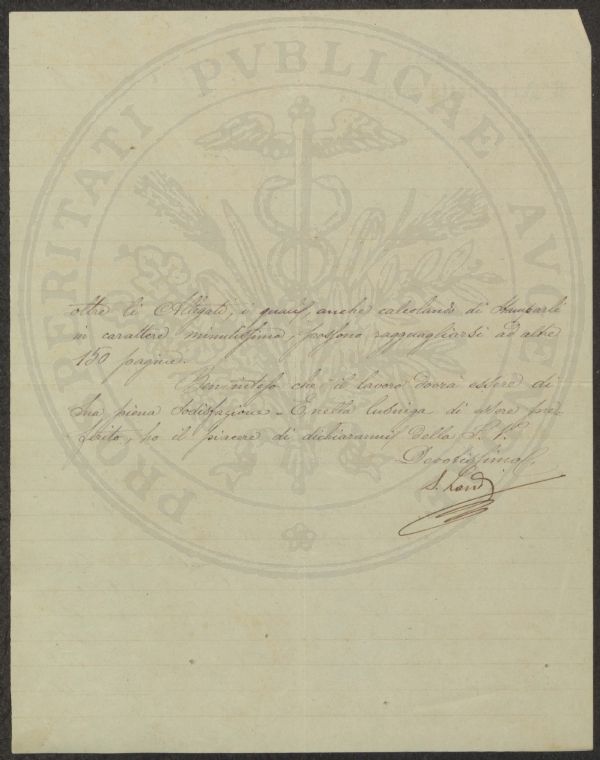 PROSPERITATI PVBLICAE AVGENDAE
oltre li Allegati, i quali, anche calcolando di stamparli
in carattere minutissimo, possono ragguagliarsi ad altre
150 pagine.
Ben inteso che il lavoro dovrà essere di
Sua piena sodisfazione. E nella lusinga di essere pre-
ferito, ho il piacere di dichiararmi della S. V.
Devotissimo
S. Landi